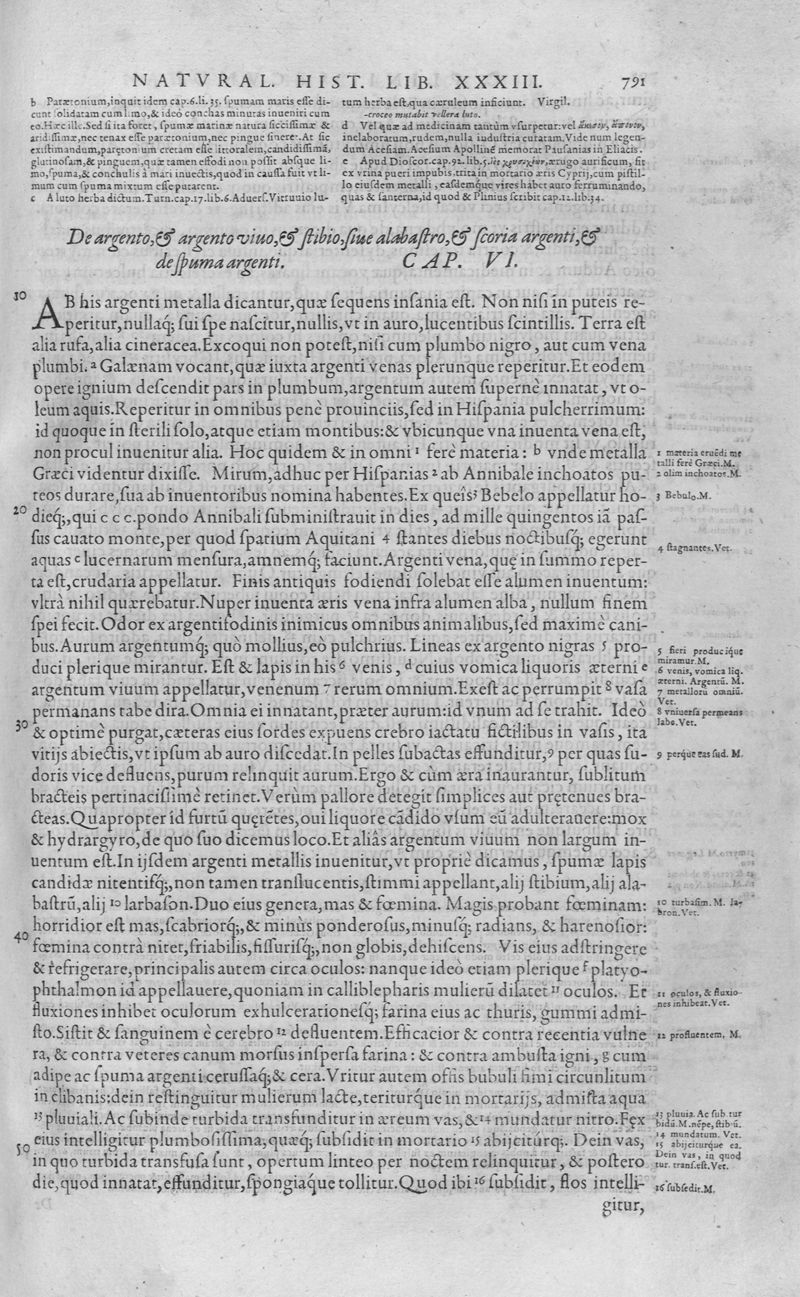 NATVRAL. HIST. LIB. XXXIII. 791
b Parætonium,inquit idem cap.6.li.35. ſpumam maris eſſe di-
cunt ſolidatam cum limo,& ideò conchas minutas inueniri cum
eo.Hæc ille.Sed ſi ita foret, ſpumæ marinæ natura ſicciſſimæ &
aridiſſimæ,nec tenax eſſe parætonium,nec pingue ſineret.At ſic
exiſtimandum,parętonium cretam eſſe littoralem,candidiſſimā,
glutinoſam,& pinguem,quæ tamen effodi non poſſit abſque li-
mo,ſpuma,& conchulis à mari inuectis,quod in cauſſa fuit vt li-
mum cum ſpuma mixtum eſſe putarent.
c A luto herba dictum.Turn.cap.17.lib.6.Aduerſ.Vitruuio lu-
tum herba eſt,qua cæruleum inficiunt. Virgil.
-croceo mutabit vellera luto.
d Vel quæ ad medicinam tantùm vſurpetur:vel
inelaboratum,rudem,nulla induſtria curatam.Vide num legen-
dum Aceſiam.Aceſium Apollinē memorat Pauſanias in Eliacis.
e Apud Dioſcor.cap.92.lib.5. ærugo aurificum, fit
ex vrina pueri impubis,trita in mortario æris Cyprij,cum piſtil-
lo eiuſdem metalli, eaſdemque vires habet auro ferruminando,
quas & ſanterna,id quod & Plinius ſcribit cap.12.lib.34.
De argento,& argento viuo,& ſtibio,ſiue alabaſtro,& ſcoria argenti,&
de ſpuma argenti. CAP. VI.
10 AB his argenti metalla dicantur,quæ ſequens inſania eſt. Non niſi in puteis re-
peritur,nullaq; ſui ſpe naſcitur,nullis,vt in auro,lucentibus ſcintillis. Terra eſt
alia rufa,alia cineracea.Excoqui non poteſt,niſi cum plumbo nigro, aut cum vena
plumbi. a Galænam vocant,quæ iuxta argenti venas plerunque reperitur.Et eodem
opere ignium deſcendit pars in plumbum,argentum autem ſupernè innatat, vt o-
leum aquis.Reperitur in omnibus penè prouinciis,ſed in Hiſpania pulcherrimum:
id quoque in ſterili ſolo,atque etiam montibus:& vbicunque vna inuenta vena eſt,
non procul inuenitur alia. Hoc quidem & in omni 1 ferè materia: b vnde metalla
Græci videntur dixiſſe. Mirum,adhuc per Hiſpanias 2 ab Annibale inchoatos pu-
teos durare,ſua ab inuentoribus nomina habentes.Ex queis 3 Bebelo appellatur ho-
20 dieq;,qui c c c.pondo Annibali ſubminiſtrauit in dies, ad mille quingentos iā paſ-
ſus cauato monte,per quod ſpatium Aquitani 4 ſtantes diebus noctibuſq; egerunt
aquas c lucernarum menſura,amnemq; faciunt.Argenti vena,quę in ſummo reper-
ta eſt,crudaria appellatur. Finis antiquis fodiendi ſolebat eſſe alumen inuentum:
vltrà nihil quærebatur.Nuper inuenta æris vena infra alumen alba, nullum finem
ſpei fecit.Odor ex argentifodinis inimicus omnibus animalibus,ſed maximè cani-
bus.Aurum argentumq; quò mollius,eò pulchrius. Lineas ex argento nigras 5 pro-
duci plerique mirantur. Eſt & lapis in his 6 venis, d cuius vomica liquoris æterni e
argentum viuum appellatur,venenum 7 rerum omnium.Exeſt ac perrumpit 8 vaſa
permanans tabe dira.Omnia ei innatant,præter aurum:id vnum ad ſe trahit. Ideò
30 & optimè purgat,cæteras eius ſordes expuens crebro iactatu fictilibus in vaſis, ita
vitijs abiectis,vt ipſum ab auro diſcedat.In pelles ſubactas effunditur,9 per quas ſu-
doris vice defluens,purum relinquit aurum.Ergo & cùm æra inaurantur, ſublitum
bracteis pertinaciſſimè retinet.Verùm pallore detegit ſimplices aut prętenues bra-
cteas.Quapropter id furtū quęrētes,oui liquore cādido vſum eū adulterauere:mox
& hydrargyro,de quo ſuo dicemus loco.Et aliâs argentum viuum non largum in-
uentum eſt.In ijſdem argenti metallis inuenitur,vt propriè dicamus, ſpumæ lapis
candidæ nitentiſq;,non tamen tranſlucentis,ſtimmi appellant,alij ſtibium,alij ala-
baſtrū,alij 10 larbaſon.Duo eius genera,mas & fœmina. Magis probant fœminam:
horridior eſt mas,ſcabriorq;,& minùs ponderoſus,minuſq; radians, & harenoſior:
40 fœmina contrà nitet,friabilis,fiſſuriſq;,non globis,dehiſcens. Vis eius adſtringere
& refrigerare,principalis autem circa oculos: nanque ideò etiam plerique f platyo-
phthalmon id appellauere,quoniam in calliblepharis mulierū dilatet 11 oculos. Et
fluxiones inhibet oculorum exhulcerationeſq; farina eius ac thuris, gummi admi-
ſto.Siſtit & ſanguinem è cerebro 12 defluentem.Efficacior & contra recentia vulne
ra, & contra veteres canum morſus inſperſa farina: & contra ambuſta igni, g cum
adipe ac ſpuma argenti ceruſſaq;& cera.Vritur autem offis bubuli fimi circunlitum
in clibanis:dein reſtinguitur mulierum lacte,teriturque in mortarijs, admiſta aqua
13 pluuiali.Ac ſubinde turbida transfunditur in æreum vas,&14 mundatur nitro.Fęx
50 eius intelligitur plumboſiſſima,quæq; ſubſidit in mortario 15 abijciturq;. Dein vas,
in quo turbida transfuſa ſunt, opertum linteo per noctem relinquitur, & poſtero
die,quod innatat,effunditur,ſpongiaque tollitur.Quod ibi 16 ſubſidit, flos intelli-
gitur,
1 materia eruēdi me
talli ferè Græci.M.
2 olim inchoatos.M.
3 Bebulo.M.
4 ſtagnantes.Vet.
5 fieri producique
miramur.M.
6 venis, vomica liq.
æterni. Argentū. M.
7 metallorū omniū.
Vet.
8 vniuerſa permeans
labe.Vet.
9 perque eas ſud. M.
10 turbaſim. M. lar-
bron.Vet.
11 oculos, & fluxio-
nes inhibeat.Vet.
12 profluentem. M.
13 pluuia. Ac ſub. tur
bidū.M.nēpe,ſtib-ū.
14 mundatum. Vet.
15 abijciturque ea.
Dein vas, in quod
tur. tranſ.eſt.Vet.
16 ſubſedit.M.